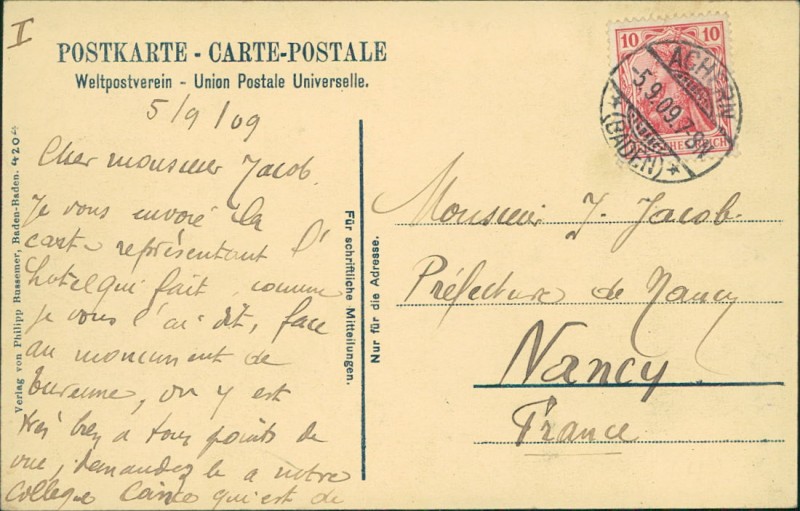 I
POSTKARTE - CARTE-POSTALE
Weltpostverein - Union Postale Universelle.
5/9/09
Cher monsieur Jacob.
Je vous envoie la
carte représentant l'
hotel qui fait, comme
je vous l'ai dit, face
au monument de
Turenne, on y est
très bien a tous points de
vue, demandez le a notre
collègue qui est de
Verlag von Philipp Russemer, Baden-Baden. 4204
Für schriftliche Mitteilungen.
Nur für die Adresse.
10 10
DEUTSCHES REICH
ACHERN
-5.9.09.7-8N.
* (BADEN) *
Monsieur J. Jacob.
Préfecture de Nancy
Nancy
France